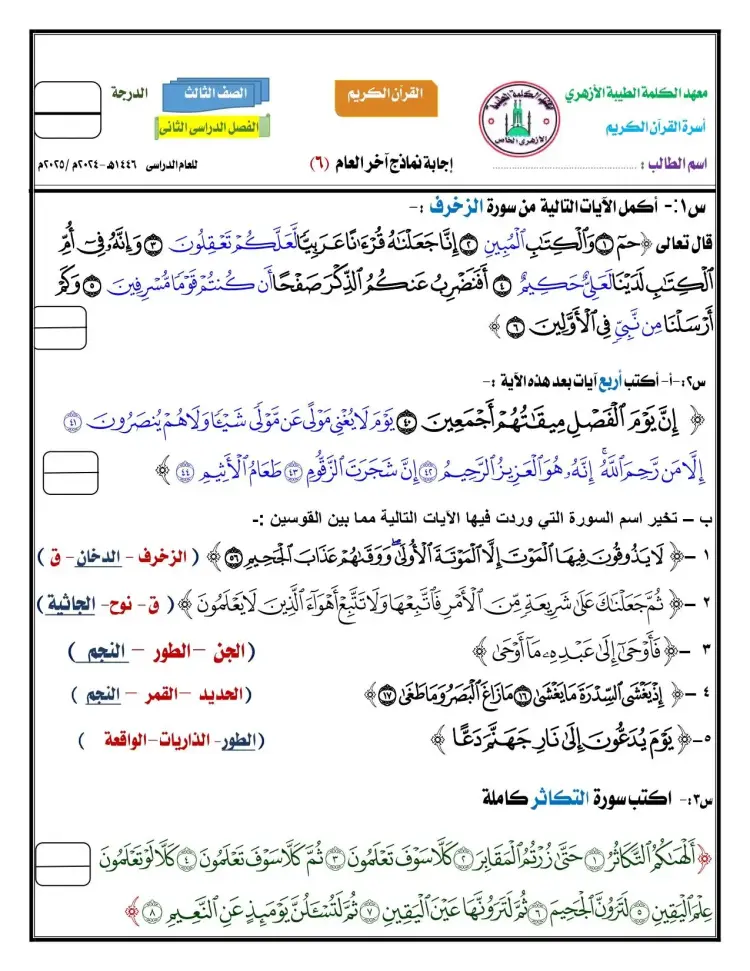 معهد الكلمة الطيبة الأزهري
القرآن الكريم
الصف الثالث
الدرجة
أسرة القرآن الكريم
الفصل الدراسى الثانى
اسم الطالب : ........................................
إجابة نماذج آخر العام (٦)
للعام الدراسى ١٤٤٦هـ -٢٠٢٤م /٢٠٢٥م
س١:- أكمل الآيات التالية من سورة الزخرف :-
قال تعالى ﴿حمٓ ١ وَٱلْكِتَٰبِ ٱلْمُبِينِ ٢ إِنَّا جَعَلْنَٰهُ قُرْءَٰنًا عَرَبِيًّا لَّعَلَّكُمْ تَعْقِلُونَ ٣ وَإِنَّهُۥ فِىٓ أُمِّ
ٱلْكِتَٰبِ لَدَيْنَا لَعَلِىٌّ حَكِيمٌ ٤ أَفَنَضْرِبُ عَنكُمُ ٱلذِّكْرَ صَفْحًا أَن كُنتُمْ قَوْمًا مُّسْرِفِينَ ٥ وَكَمْ
أَرْسَلْنَا مِن نَّبِىٍّ فِى ٱلْأَوَّلِينَ ٦ ﴾
س٢:-أ- أكتب أربع آيات بعد هذه الآية :-
﴿ إِنَّ يَوْمَ ٱلْفَصْلِ مِيقَٰتُهُمْ أَجْمَعِينَ ٤٠ يَوْمَ لَا يُغْنِى مَوْلًى عَن مَّوْلًى شَيْـًٔا وَلَا هُمْ يُنصَرُونَ ٤١
إِلَّا مَن رَّحِمَ ٱللَّهُ ۚ إِنَّهُۥ هُوَ ٱلْعَزِيزُ ٱلرَّحِيمُ ٤٢ إِنَّ شَجَرَتَ ٱلزَّقُّومِ ٤٣ طَعَامُ ٱلْأَثِيمِ ٤٤ ﴾
ب – تخير اسم السورة التي وردت فيها الآيات التالية مما بين القوسين :-
١ -﴿ لَا يَذُوقُونَ فِيهَا ٱلْمَوْتَ إِلَّا ٱلْمَوْتَةَ ٱلْأُولَىٰ ۖ وَوَقَىٰهُمْ عَذَابَ ٱلْجَحِيمِ ٥٦ ﴾ ( الزخرف - الدخان- ق )
٢ -﴿ ثُمَّ جَعَلْنَٰكَ عَلَىٰ شَرِيعَةٍ مِّنَ ٱلْأَمْرِ فَٱتَّبِعْهَا وَلَا تَتَّبِعْ أَهْوَآءَ ٱلَّذِينَ لَا يَعْلَمُونَ ﴾ ( ق - نوح- الجاثية )
٣ -﴿ فَأَوْحَىٰٓ إِلَىٰ عَبْدِهِۦ مَآ أَوْحَىٰ ﴾ (الجن -الطور - النجم )
٤ -﴿ إِذْ يَغْشَى ٱلسِّدْرَةَ مَا يَغْشَىٰ ١٦ مَا زَاغَ ٱلْبَصَرُ وَمَا طَغَىٰ ١٧ ﴾ (الحديد -القمر - النجم )
٥-﴿ يَوْمَ يُدَعُّونَ إِلَىٰ نَارِ جَهَنَّمَ دَعًّا ﴾ (الطور- الذاريات-الواقعة )
س٣:- اكتب سورة التكاثر كاملة
﴿ أَلْهَىٰكُمُ ٱلتَّكَاثُرُ ١ حَتَّىٰ زُرْتُمُ ٱلْمَقَابِرَ ٢ كَلَّا سَوْفَ تَعْلَمُونَ ٣ ثُمَّ كَلَّا سَوْفَ تَعْلَمُونَ ٤ كَلَّا لَوْ تَعْلَمُونَ
عِلْمَ ٱلْيَقِينِ ٥ لَتَرَوُنَّ ٱلْجَحِيمَ ٦ ثُمَّ لَتَرَوُنَّهَا عَيْنَ ٱلْيَقِينِ ٧ ثُمَّ لَتُسْـَٔلُنَّ يَوْمَئِذٍ عَنِ ٱلنَّعِيمِ ٨ ﴾